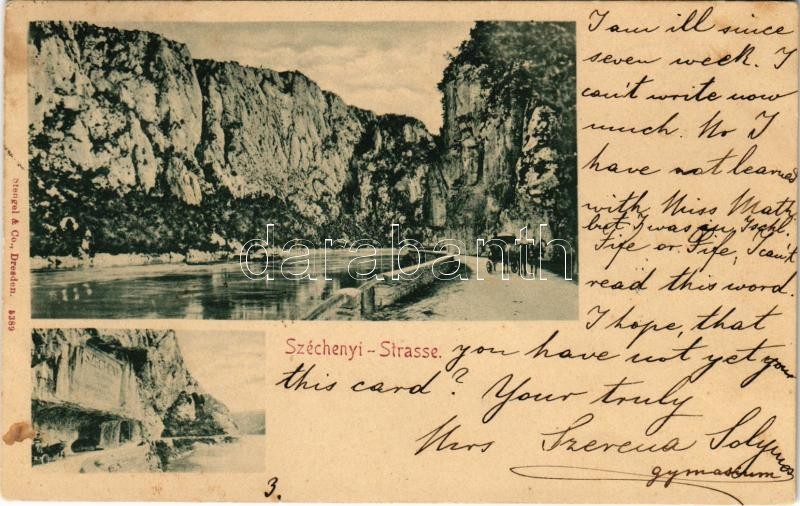 I am ill since
seven week. I
can't write now
much. No I
have not learned
with Miss
but I was in Ischl.
Fife or Fife, I can't
read this word.
I hope, that
you have not yet your
this card? Your truly
Mrs Szerena Solymos
gymasium
Széchenyi-Strasse.
Stengel & Co., Dresden. 5389
3.
darabanth